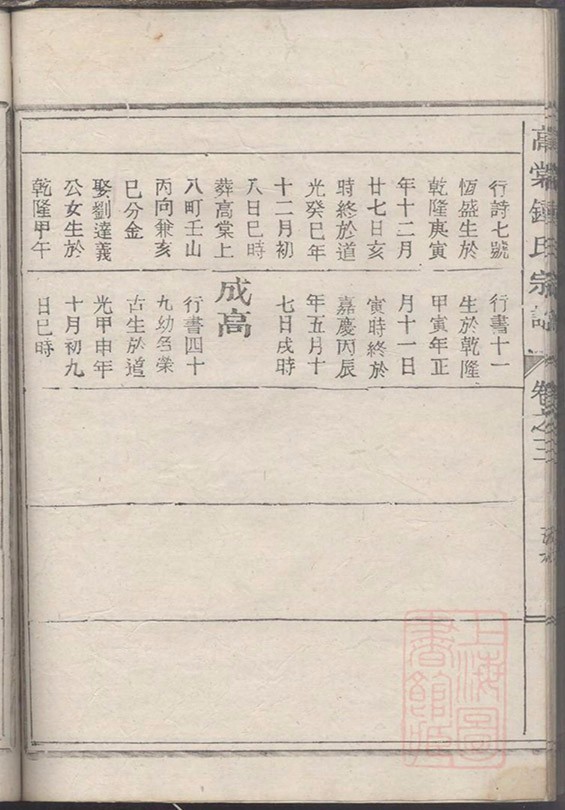 高棠鍾氏宗譜
卷之三
行詩七號
恆盛生於
乾隆庚寅
年十二月
廿七日亥
時終於道
光癸巳年
十二月初
八日巳時
葬高棠上
八町壬山
丙向兼亥
巳分金
娶劉達義
公女生於
乾隆甲午
行書十一
生於乾隆
甲寅年正
月十一日
寅時終於
嘉慶丙辰
年五月十
七日戌時
成高
行書四十
九幼名榮
古生於道
光甲申年
十月初九
日巳時
上海圖
書館藏